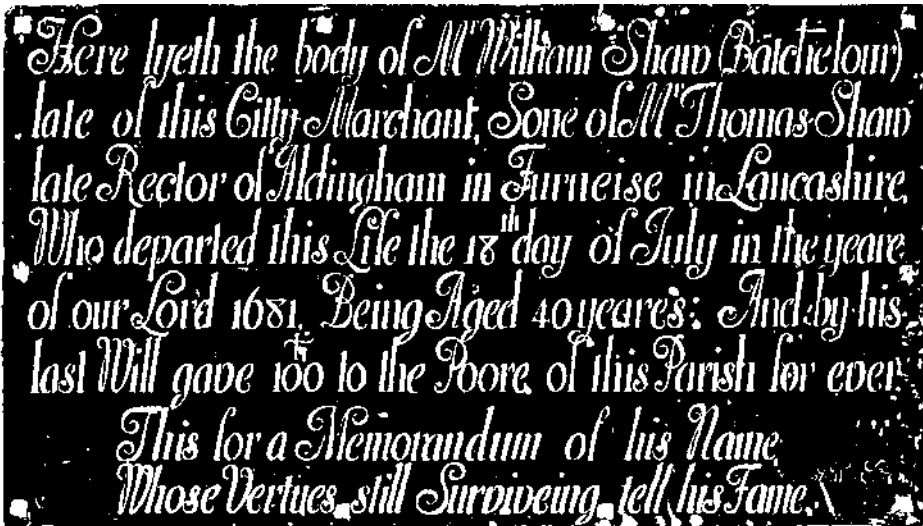 Here lyeth the body of Mr William Shaw (Batchelour)
late of this Citty Marchant, Sone of Mr Thomas Shaw
late Rector of Aldingham in Furneise in Lancashire,
Who departed this Life the 18th day of July in the yeare
of our Lord 1681, Being Aged 40 yeares: And by his
last Will gave 100 to the Poore of this Parish for ever
This for a Memorandum of his Name,
Whose Vertues still Surviveing tell his Fame.